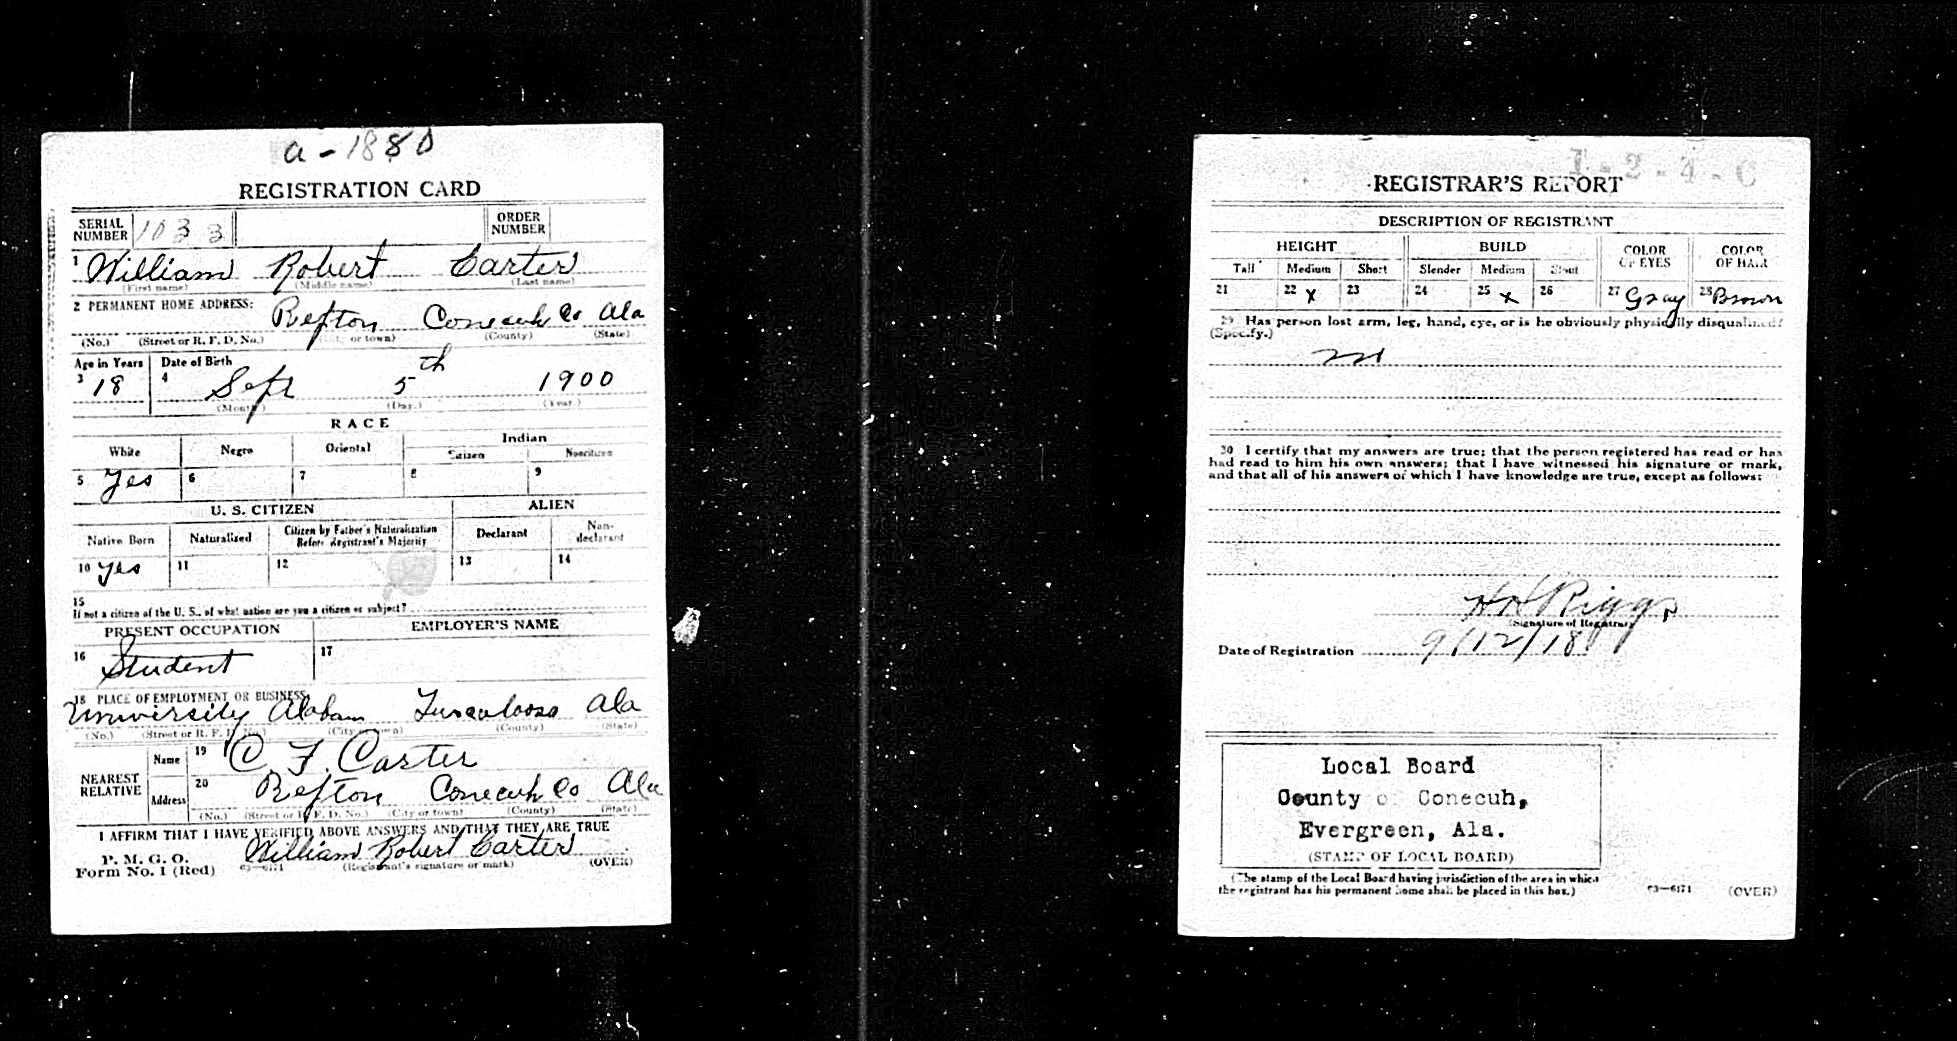 a - 1880
REGISTRATION CARD
SERIAL NUMBER 1033 ORDER NUMBER
1 William Robert Carter
(First name) (Middle name) (Last name)
2 PERMANENT HOME ADDRESS:
Repton Conecuh Co Ala
(No.) (Street or R. F. D. No.) (City or town) (County) (State)
Age in Years Date of Birth
3 18 4 Sept 5th 1900
(Month.) (Day.) (Year.)
RACE
White Negro Oriental Indian
Citizen Noncitizen
5 Yes 6 7 8 9
U. S. CITIZEN ALIEN
Native Born Naturalized Citizen by Father's Naturalization Before Registrant's Majority Declarant Non-declarant
10 Yes 11 12 13 14
15
If not a citizen of the U. S., of what nation are you a citizen or subject?
PRESENT OCCUPATION EMPLOYER'S NAME
16 Student 17
18 PLACE OF EMPLOYMENT OR BUSINESS:
University Alabam Tuscaloosa Ala
(No.) (Street or R. F. D. No.) (City or town) (County) (State)
NEAREST RELATIVE Name 19 C. F. Carter
Address 20 Repton Conecuh Co Ala
(No.) (Street or R. F. D. No.) (City or town) (County) (State)
I AFFIRM THAT I HAVE VERIFIED ABOVE ANSWERS AND THAT THEY ARE TRUE
P. M. G. O.
Form No. 1 (Red) 03—6171 William Robert Carter
(Registrant's signature or mark) (OVER)
1-2-4-C
REGISTRAR'S REPORT
DESCRIPTION OF REGISTRANT
HEIGHT BUILD COLOR OF EYES COLOR OF HAIR
Tall Medium Short Slender Medium Stout
21 22 X 23 24 25 X 26 27 Gray 28 Brown
29 Has person lost arm, leg, hand, eye, or is he obviously physically disqualified?
(Specify.)
no
30 I certify that my answers are true; that the person registered has read or has
had read to him his own answers; that I have witnessed his signature or mark,
and that all of his answers of which I have knowledge are true, except as follows:
H H Riggs
(Signature of Registrar)
Date of Registration 9/12/18
Local Board
County of Conecuh,
Evergreen, Ala.
(STAMP OF LOCAL BOARD)
(The stamp of the Local Board having jurisdiction of the area in which
the registrant has his permanent home shall be placed in this box.)
03—6171 (OVER)